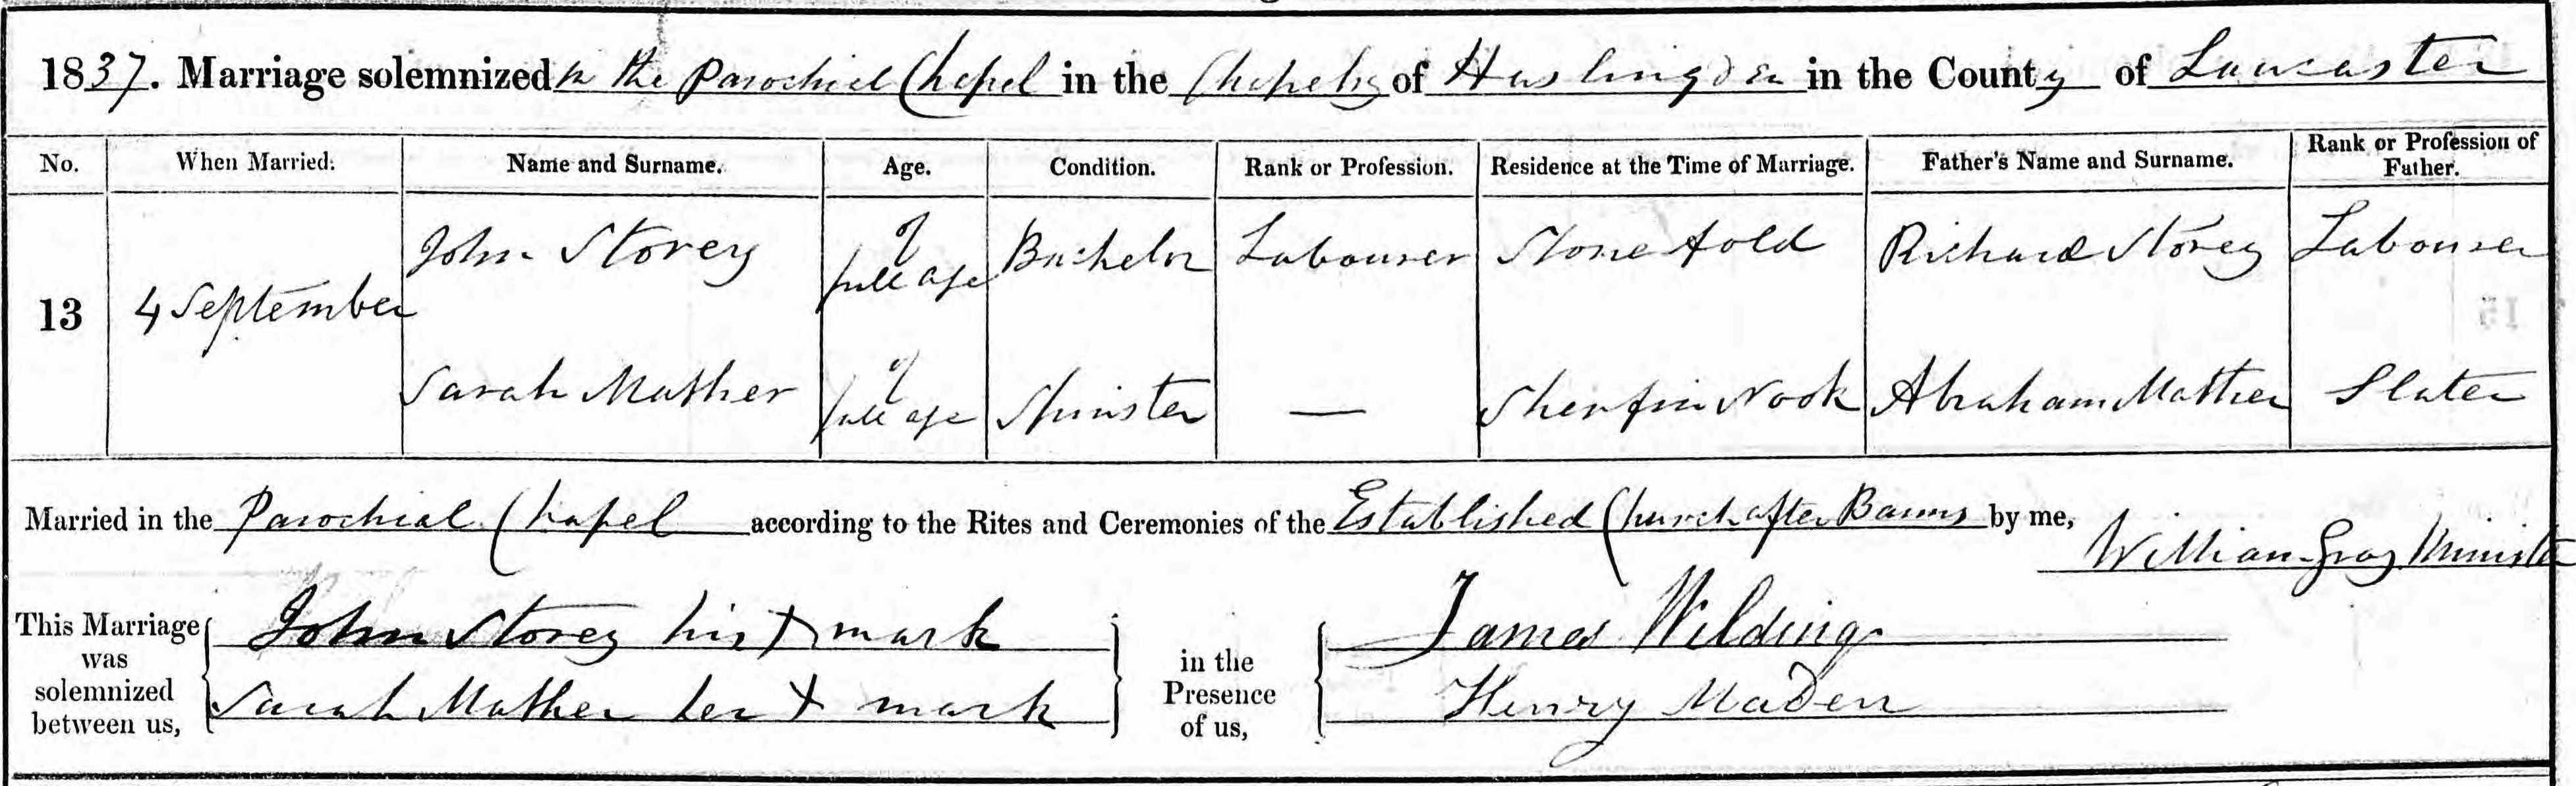 1837. Marriage solemnized in the Parochial Chapel in the Chapelry of Haslingden in the County of Lancaster
No. When Married. Name and Surname. Age. Condition. Rank or Profession. Residence at the Time of Marriage. Father's Name and Surname. Rank or Profession of Father.
13 4 September
John Storey of full age Bachelor Labourer Stone fold Richard Storey Labourer
Sarah Mather of full age Spinster — Shenfin Nook Abraham Mather Slater
Married in the Parochial Chapel according to the Rites and Ceremonies of the Established Church after Banns by me,
William Gray Minister
This Marriage was solemnized between us,
John Storey his X mark
Sarah Mather her X mark
in the Presence of us,
James Wilding
Henry Maden
15